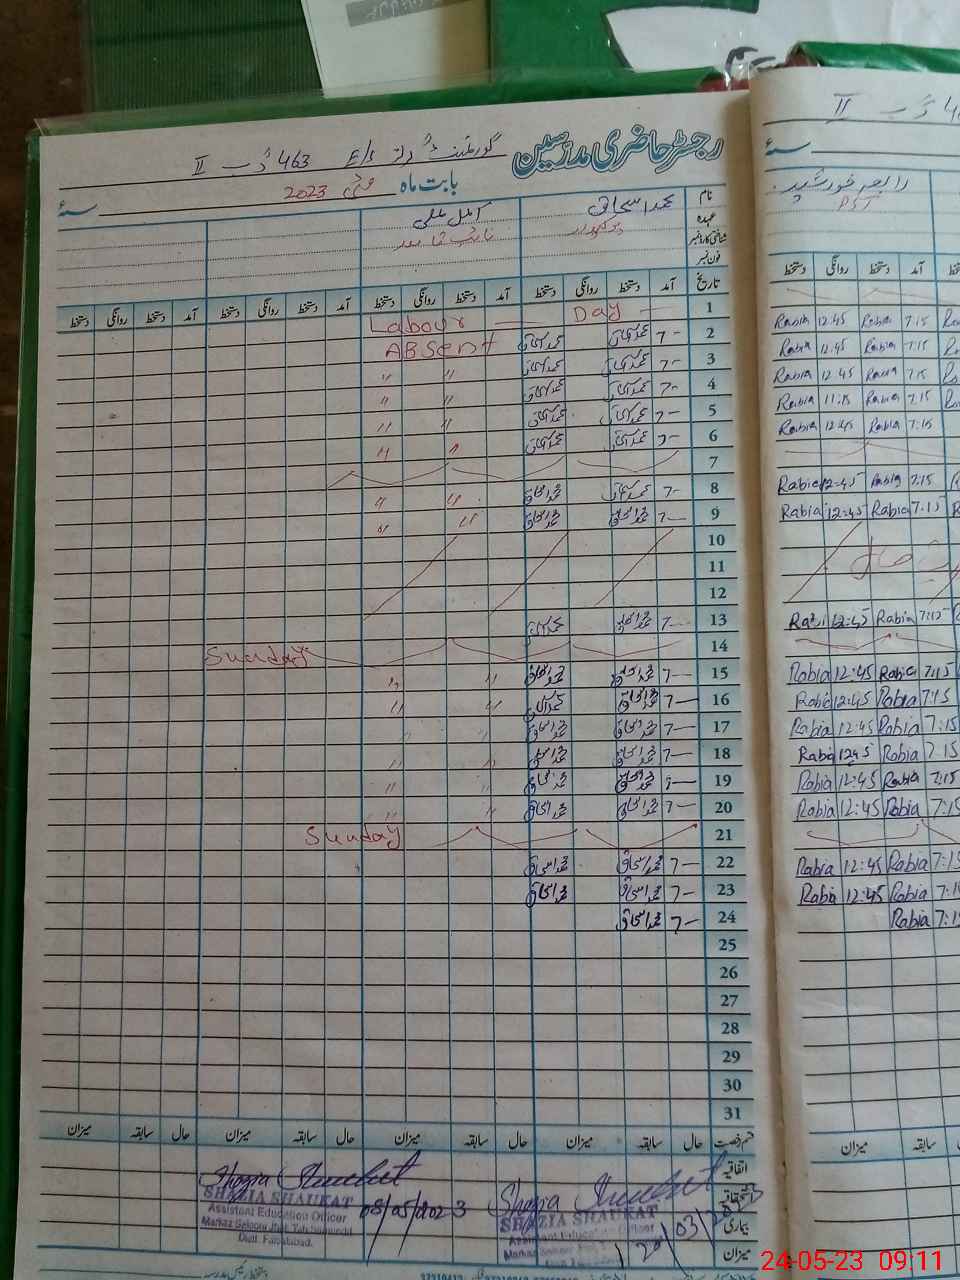 رجسٹر حاضری مدرسین
گورنمنٹ گرلز E/S 463 گ ب II
بابت ماہ مئی 2023 سنہ
نام محمد اسحاق
عہدہ
شناختی کارڈ نمبر
فون نمبر
تاریخ آمد دستخط روانگی دستخط آمد دستخط روانگی دستخط آمد دستخط روانگی دستخط آمد دستخط روانگی دستخط
1 Labour Day
2 7 محمد اسحاق محمد اسحاق ABSent
3 7 محمد اسحاق محمد اسحاق " "
4 7 محمد اسحاق محمد اسحاق " "
5 7 محمد اسحاق محمد اسحاق " "
6 7 محمد اسحاق محمد اسحاق " "
7
8 7 محمد اسحاق محمد اسحاق " "
9 7 محمد اسحاق محمد اسحاق " "
10
11
12
13 7 محمد اسحاق محمد اسحاق
14 Sunday
15 7 محمد اسحاق محمد اسحاق " "
16 7 محمد اسحاق محمد اسحاق " "
17 7 محمد اسحاق محمد اسحاق " "
18 7 محمد اسحاق محمد اسحاق " "
19 7 محمد اسحاق محمد اسحاق " "
20 7 محمد اسحاق محمد اسحاق " "
21 Sunday
22 7 محمد اسحاق محمد اسحاق
23 7 محمد اسحاق محمد اسحاق
24 7 محمد اسحاق
25
26
27
28
29
30
31
قسم رخصت حال سابقہ میزان حال سابقہ میزان حال سابقہ میزان حال سابقہ میزان
اتفاقیہ
استحقاقیہ
بیماری
میزان
Shazia Shaukat
SHAZIA SHAUKAT
Assistant Education Officer
Distt. Faisalabad.
08/05/2023
Shazia Shaukat
SHAZIA SHAUKAT
Assistant Education Officer
II
سنہ
رابعہ خورشید
PST
آمد دستخط روانگی دستخط
Rabia 12:45 Rabia 7:15
Rabia 12:45 Rabia 7:15
Rabia 12:45 Rabia 7:15
Rabia 11:15 Rabia 7:15
Rabia 12:45 Rabia 7:15
Rabia 12:45 Rabia 7:15
Rabia 12:45 Rabia 7:15
Rabia 12:45 Rabia 7:15
Rabia 12:45 Rabia 7:15
Rabia 12:45 Rabia 7:15
Rabia 12:45 Rabia 7:15
Rabia 1245 Rabia 7 15
Rabia 12:45 Rabia 7:15
Rabia 12:45 Rabia 7:15
Rabia 12:45 Rabia 7:15
Rabia 12:45 Rabia 7:15
Rabia 7:15
سابقہ میزان
24-05-23 09:11